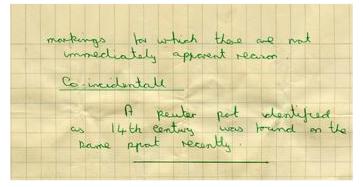 markings for which there are not
immediately apparent reason.
Co-incidentall
A peuter pot identified
as 14th century was found on the
same spot recently.